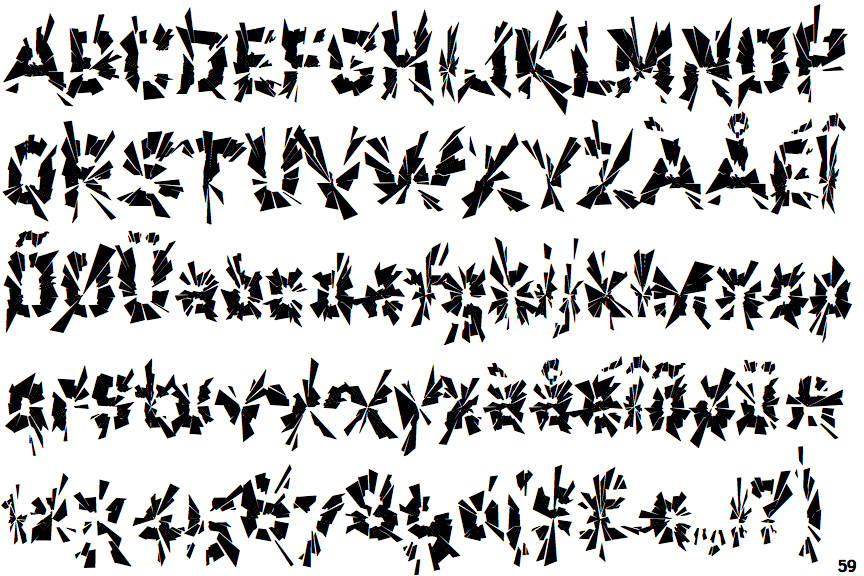 ABCDEFGHIJKLMNOP
QRSTUVWXYZÀÅÉÎ
ÕØÜabcdefghijklmnop
qrstuvwxyzàåéîõøü&
1234567890($£€.,!?)
59